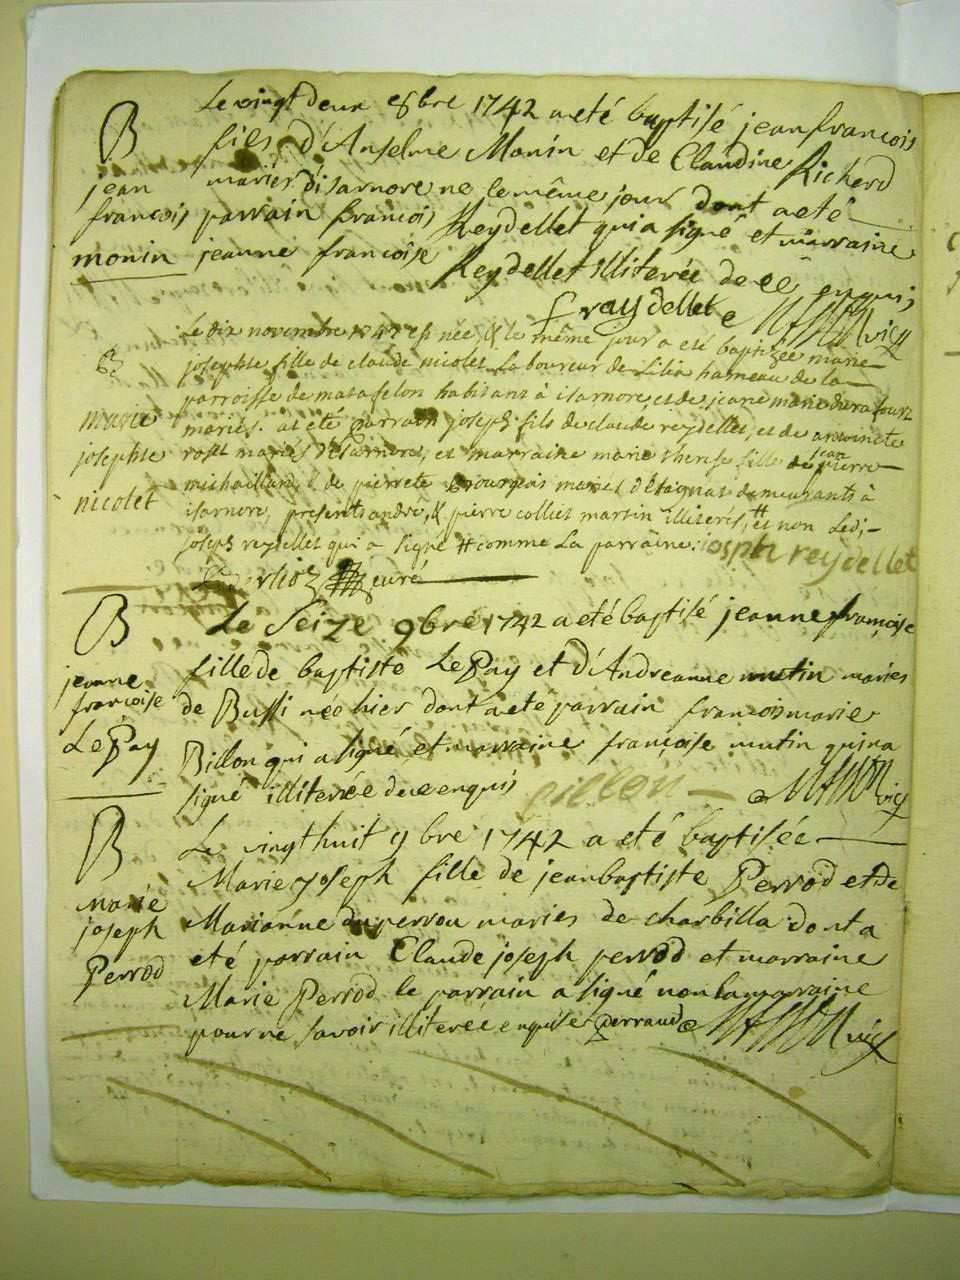 B
jean
francois
monin
Le vingt deux 8bre 1742 a eté baptisé jean francois
fils d'Anselme Monin et de Claudine Richerd
mariés d'isarnore ne le même jour dont a eté
parrain francois Reydellet qui a signé et marraine
jeanne francoise Reydellet illiterée de ce enquis
f raydellet
B
marie
josephte
nicolet
Le dix novembre 1742 est née, & le même jour a eté baptizée marie
josephte fille de claude nicolet Laboureur de Lilia hameau de la
parroisse de matafelon habitant à isarnore, et de jeane marie
mariés. a eté parrain joseph fils de claude reydellet, et de antoinete
rosset mariés d'isarnore, et marraine marie therese fille de jean pierre
michaillard, & de pierrete Bourgeois mariés demeurants à
isarnore, presents andré, & pierre colliet martin illiterés, et non Ledi-
joseph reydellet qui a signé # comme La parraine: ioseph reydellet
curé
B
jeanne
francoise
LePay
Le Seize 9bre 1742 a eté baptisé jeanne françoise
fille de baptiste LePay et d'Andreanne mutin maries
de Bussi née hier dont a eté parrain francois marie
Billon qui a signé et marraine françoise mutin qui na
signé illiterée de ce enquis billon
B
marie
joseph
Perrod
Le vingt huit 9bre 1742 a eté baptisée
Marie joseph fille de jean baptiste Perrod et de
Marianne du perrou maries de charbilla dont a
eté parrain Claude joseph perrod et marraine
Marie Perrod le parrain a signé non la marraine
pour ne savoir illiterée enquise perraud